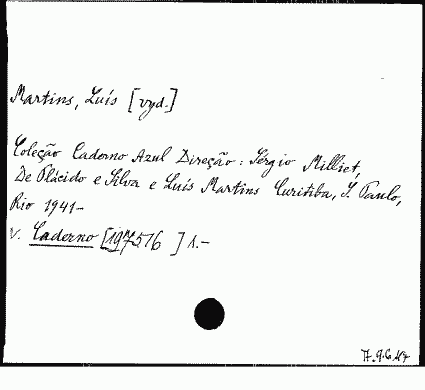 Martins, Luís [vyd.]
Coleção Caderno Azul Direção: Sérgio Milliet,
De Plácido e Silva e Luís Martins Curitiba, S. Paulo,
Rio 1941-
v. Caderno [197576 ] 1.-